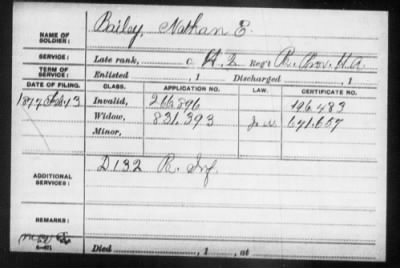 NAME OF SOLDIER: Bailey, Nathan E.
SERVICE: Late rank, Co. H. 2 Reg't Pa. Prov. H.A.
TERM OF SERVICE: Enlisted , 1 Discharged , 1
DATE OF FILING. CLASS. APPLICATION NO. LAW. CERTIFICATE NO.
13 Invalid, 266,896 196.483
Widow, 831,393 641.657
Minor,
ADDITIONAL SERVICES: D 132 Inf.
REMARKS:
Died , 1 , at